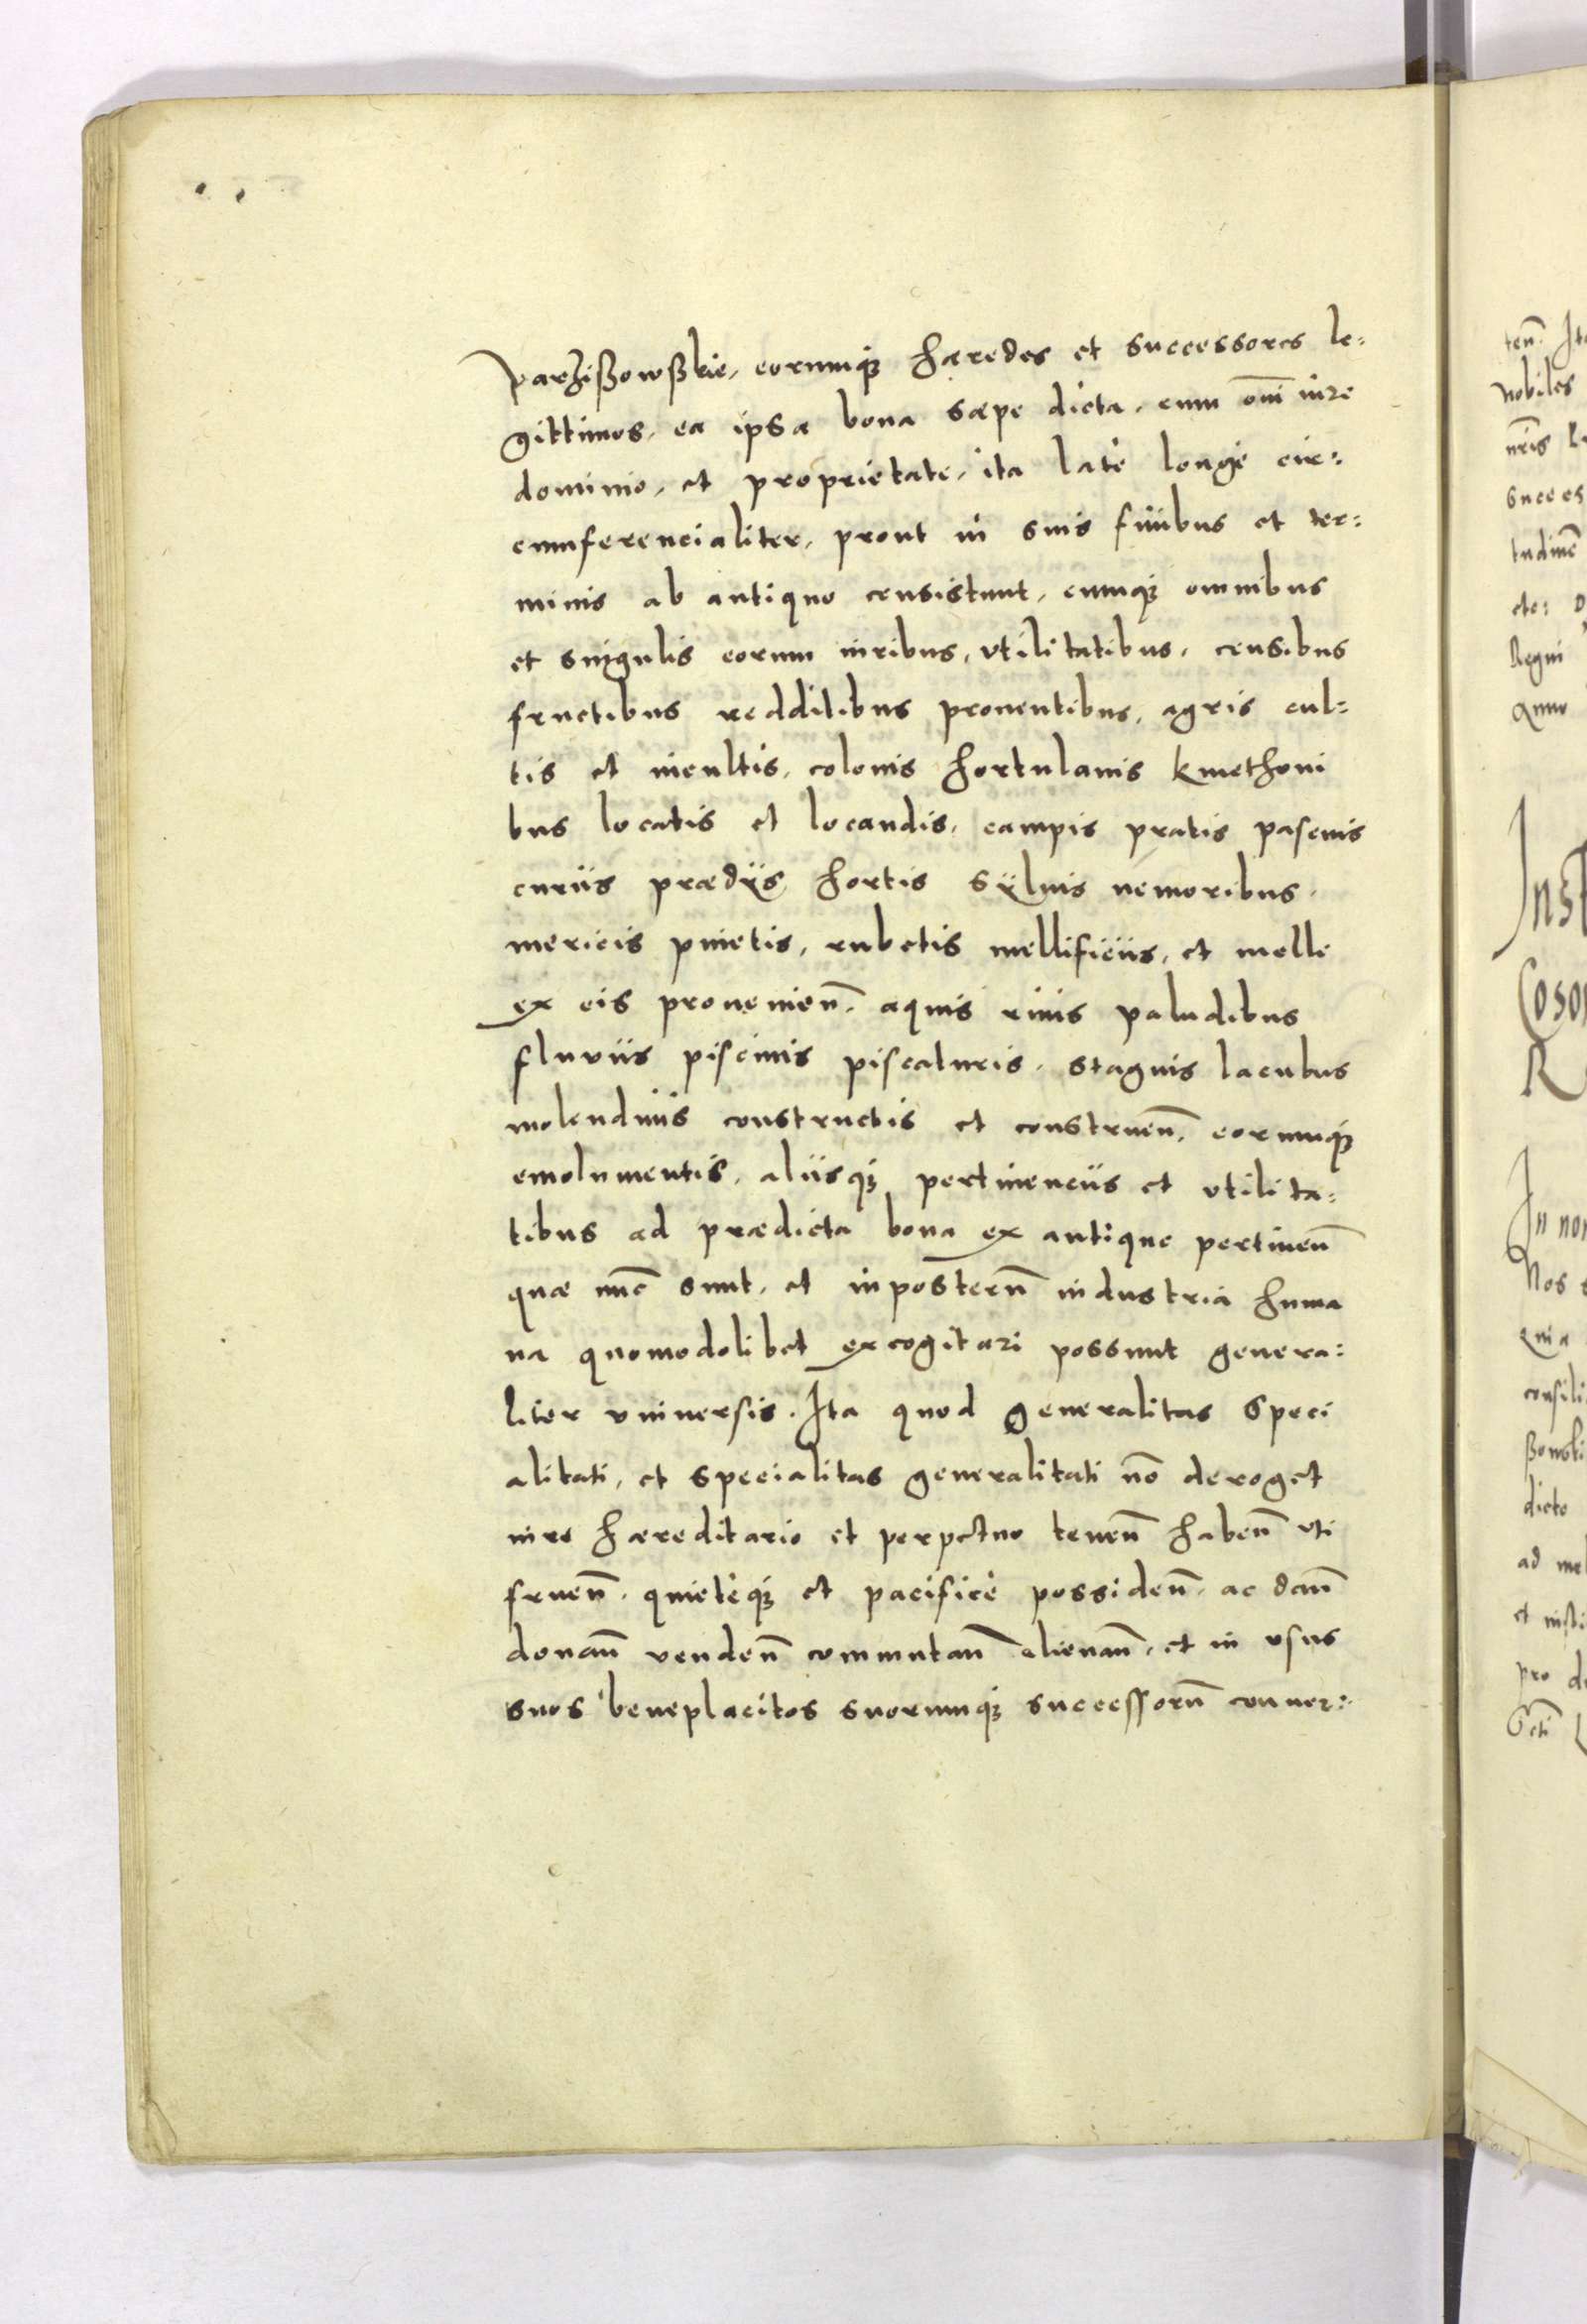 Parzißowßkie, eorumq₃ hæredes et successores le:
gittimos, ea ipsa bona sæpe dicta, cum om̄i iure
dominio, et proprietate, ita latè longè cir:
cumferencialiter, prout in suis finibus et ter:
minis ab antiquo consistunt, cumq₃ omnibus
et singulis eorum iuribus, vtilitatibus, censibus
fructibus redditibus prouentibus, agris cul:
tis et incultis, colonis hortulanis kmethoni
bus locatis et locandis, campis pratis pascuis
curiis prædiis hortis syluis nemoribus,
mericis pinetis, rubetis mellificiis, et melle
ex eis prouenien̄, aquis riuis paludibus
fluviis piscinis piscaturis, stagnis lacubus
molendinis constructis et construen̄, eorumq₃
emolumentis, aliisq₃ pertinenciis et vtilita:
tibus ad prædicta bona ex antiquo pertinen̄
quæ nūc sunt, et inposterū industria huma
na quomodolibet excogitari possunt genera:
liter vniuersis. Ita quod generalitas speci
alitati, et specialitas generalitati nō deroget
iure hæreditario et perpetuo tenen̄ haben̄ vti
fruen̄, quietèq₃ et pacificè possiden̄, ac dan̄
donan̄ venden̄ commutan̄ alienan̄, et in vsus
suos beneplacitos suorumq₃ successorū conuer:
ten̄. Ita
nobiles
nr̄is
succes
tudinē
etc:
Regni
Anno
Inst
Coson
R
In nom
Nos
quia
consili
ßowski
dicto
ad mel
et insti
pro de